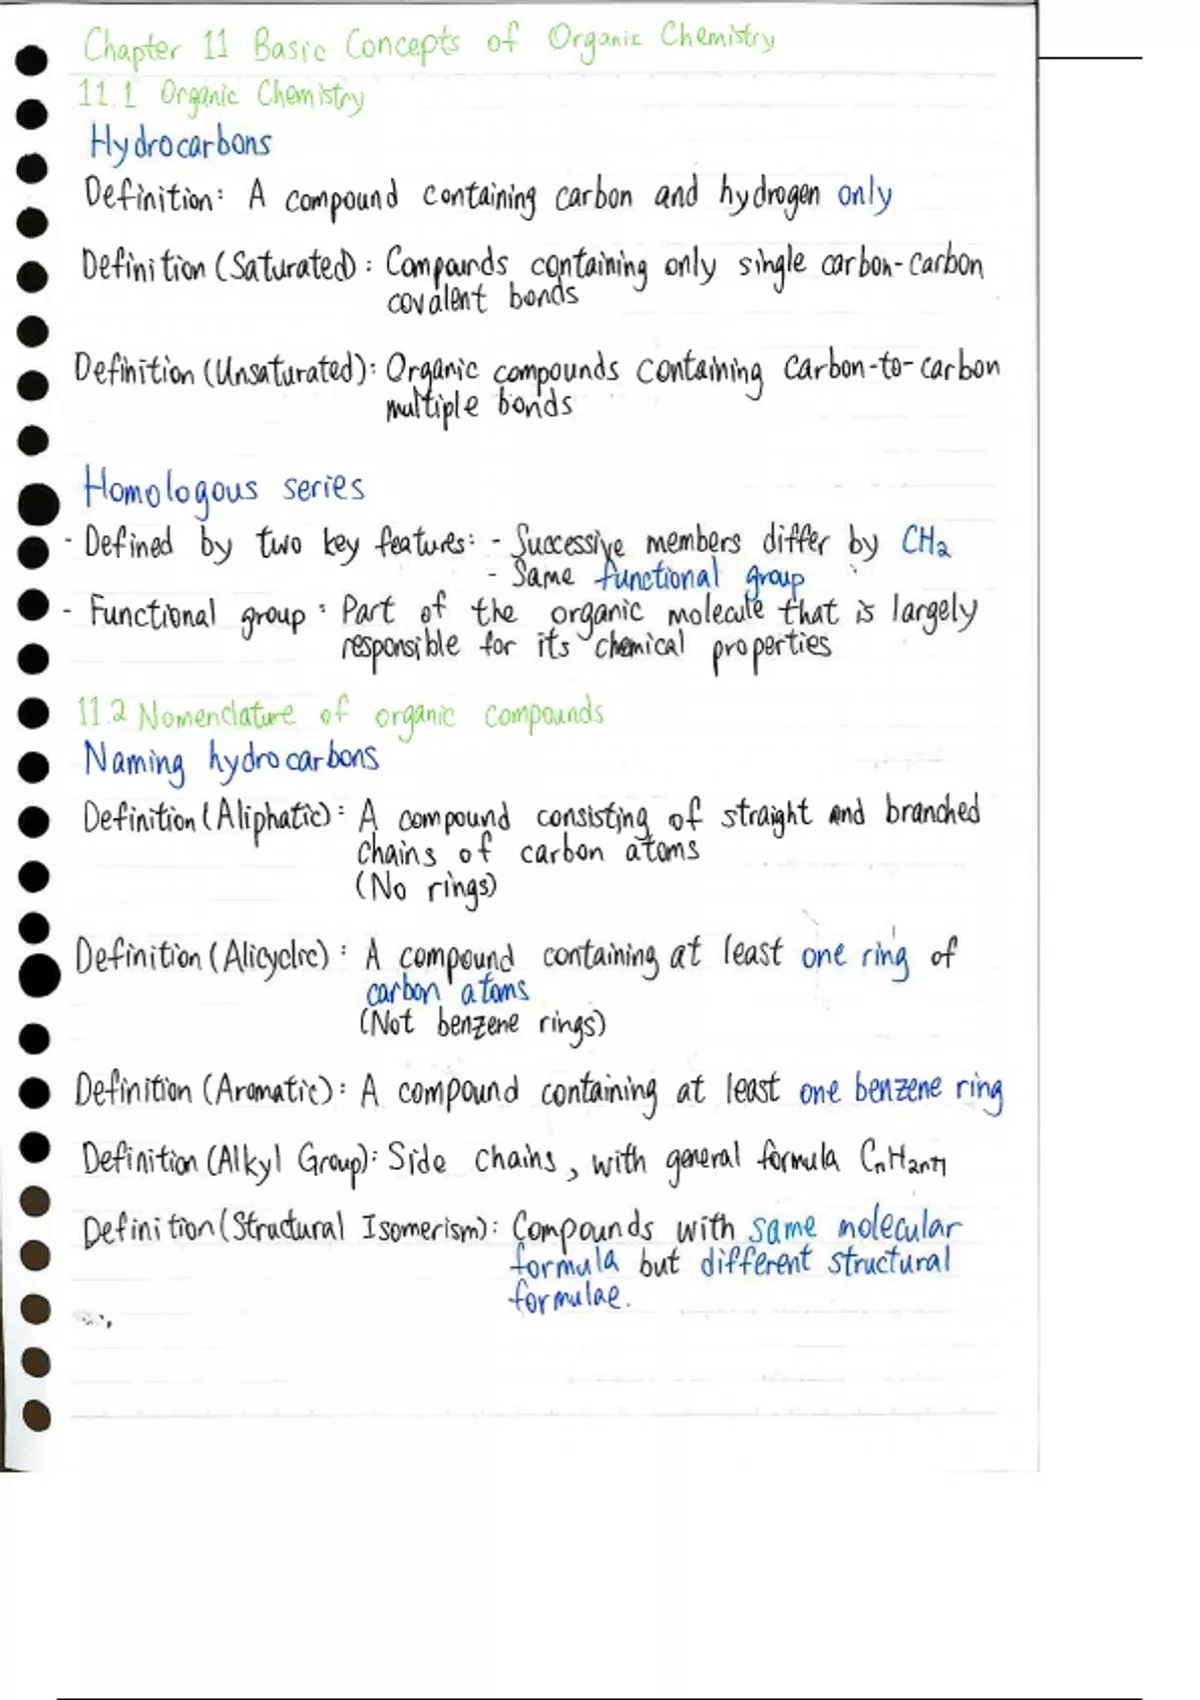 Chapter 11 Basic Concepts of Organic Chemistry
11.1 Organic Chemistry
Hydrocarbons
Definition: A compound containing carbon and hydrogen only
Definition (Saturated): Compounds containing only single carbon-carbon
covalent bonds
Definition (Unsaturated): Organic compounds containing carbon-to-carbon
multiple bonds
Homologous series
- Defined by two key features: - Successive members differ by CH₂
- Same functional group
- Functional group: Part of the organic molecule that is largely
responsible for its chemical properties
11.2 Nomenclature of organic compounds
Naming hydrocarbons
Definition (Aliphatic): A compound consisting of straight and branched
chains of carbon atoms
(No rings)
Definition (Alicyclic): A compound containing at least one ring of
carbon atoms
(Not benzene rings)
Definition (Aromatic): A compound containing at least one benzene ring
Definition (Alkyl Group): Side chains, with general formula CₙH₂ₙ₊₁
Definition (Structural Isomerism): Compounds with same molecular
formula but different structural
formulae.